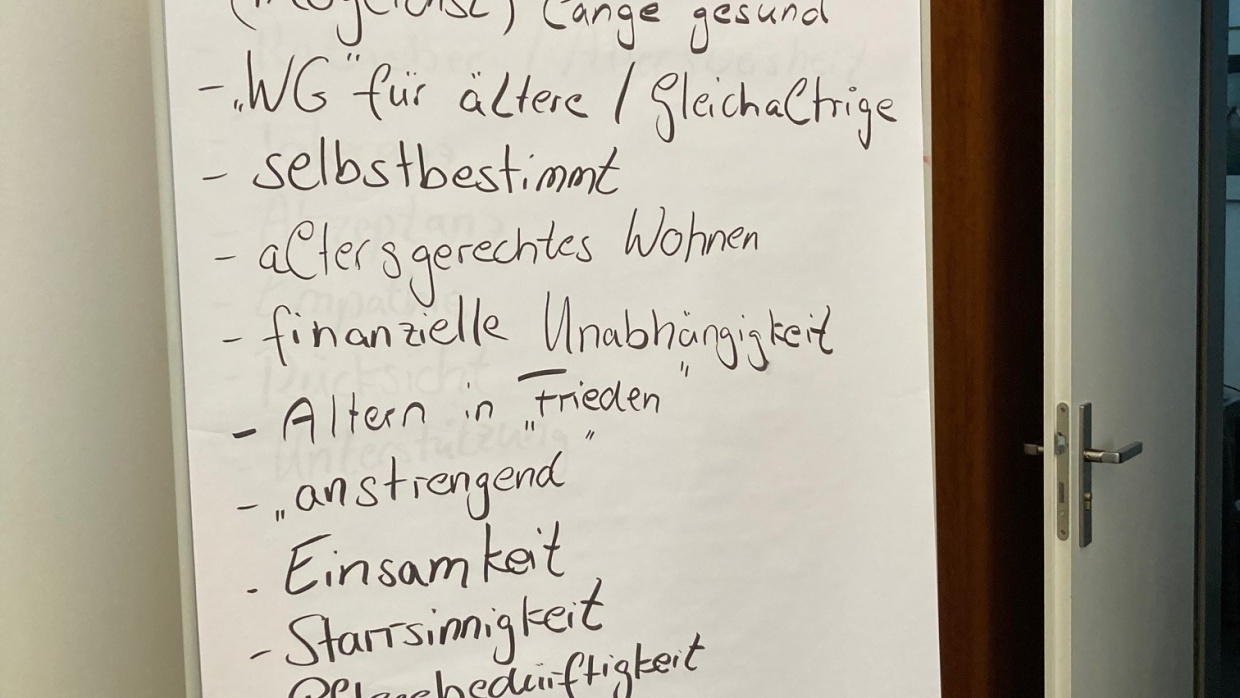 (möglichst) lange gesund
- „WG" für ältere / Gleichaltrige
- selbstbestimmt
- altersgerechtes Wohnen
- finanzielle Unabhängigkeit
- Altern in „Frieden"
- „anstrengend"
- Einsamkeit
- Starrsinnigkeit
Pflegebedürftigkeit